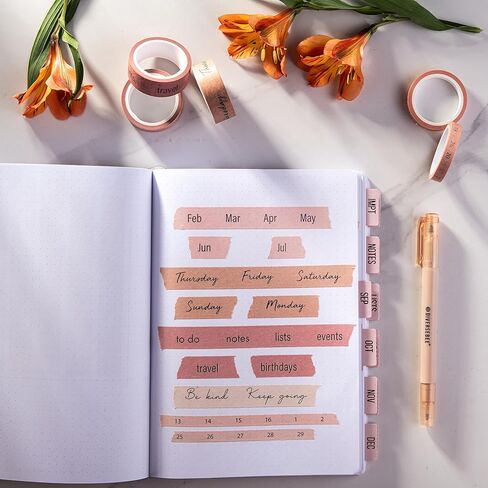 travel
Feb Mar Apr May
Jun Jul
Thursday Friday Saturday
Sunday Monday
to do notes lists events
travel birthdays
Be kind Keep going
13 14 15 16 1 2
25 26 27 28 29
IMPT
NOTES
SEP
OCT
NOV
DEC
DIVERSEBEE